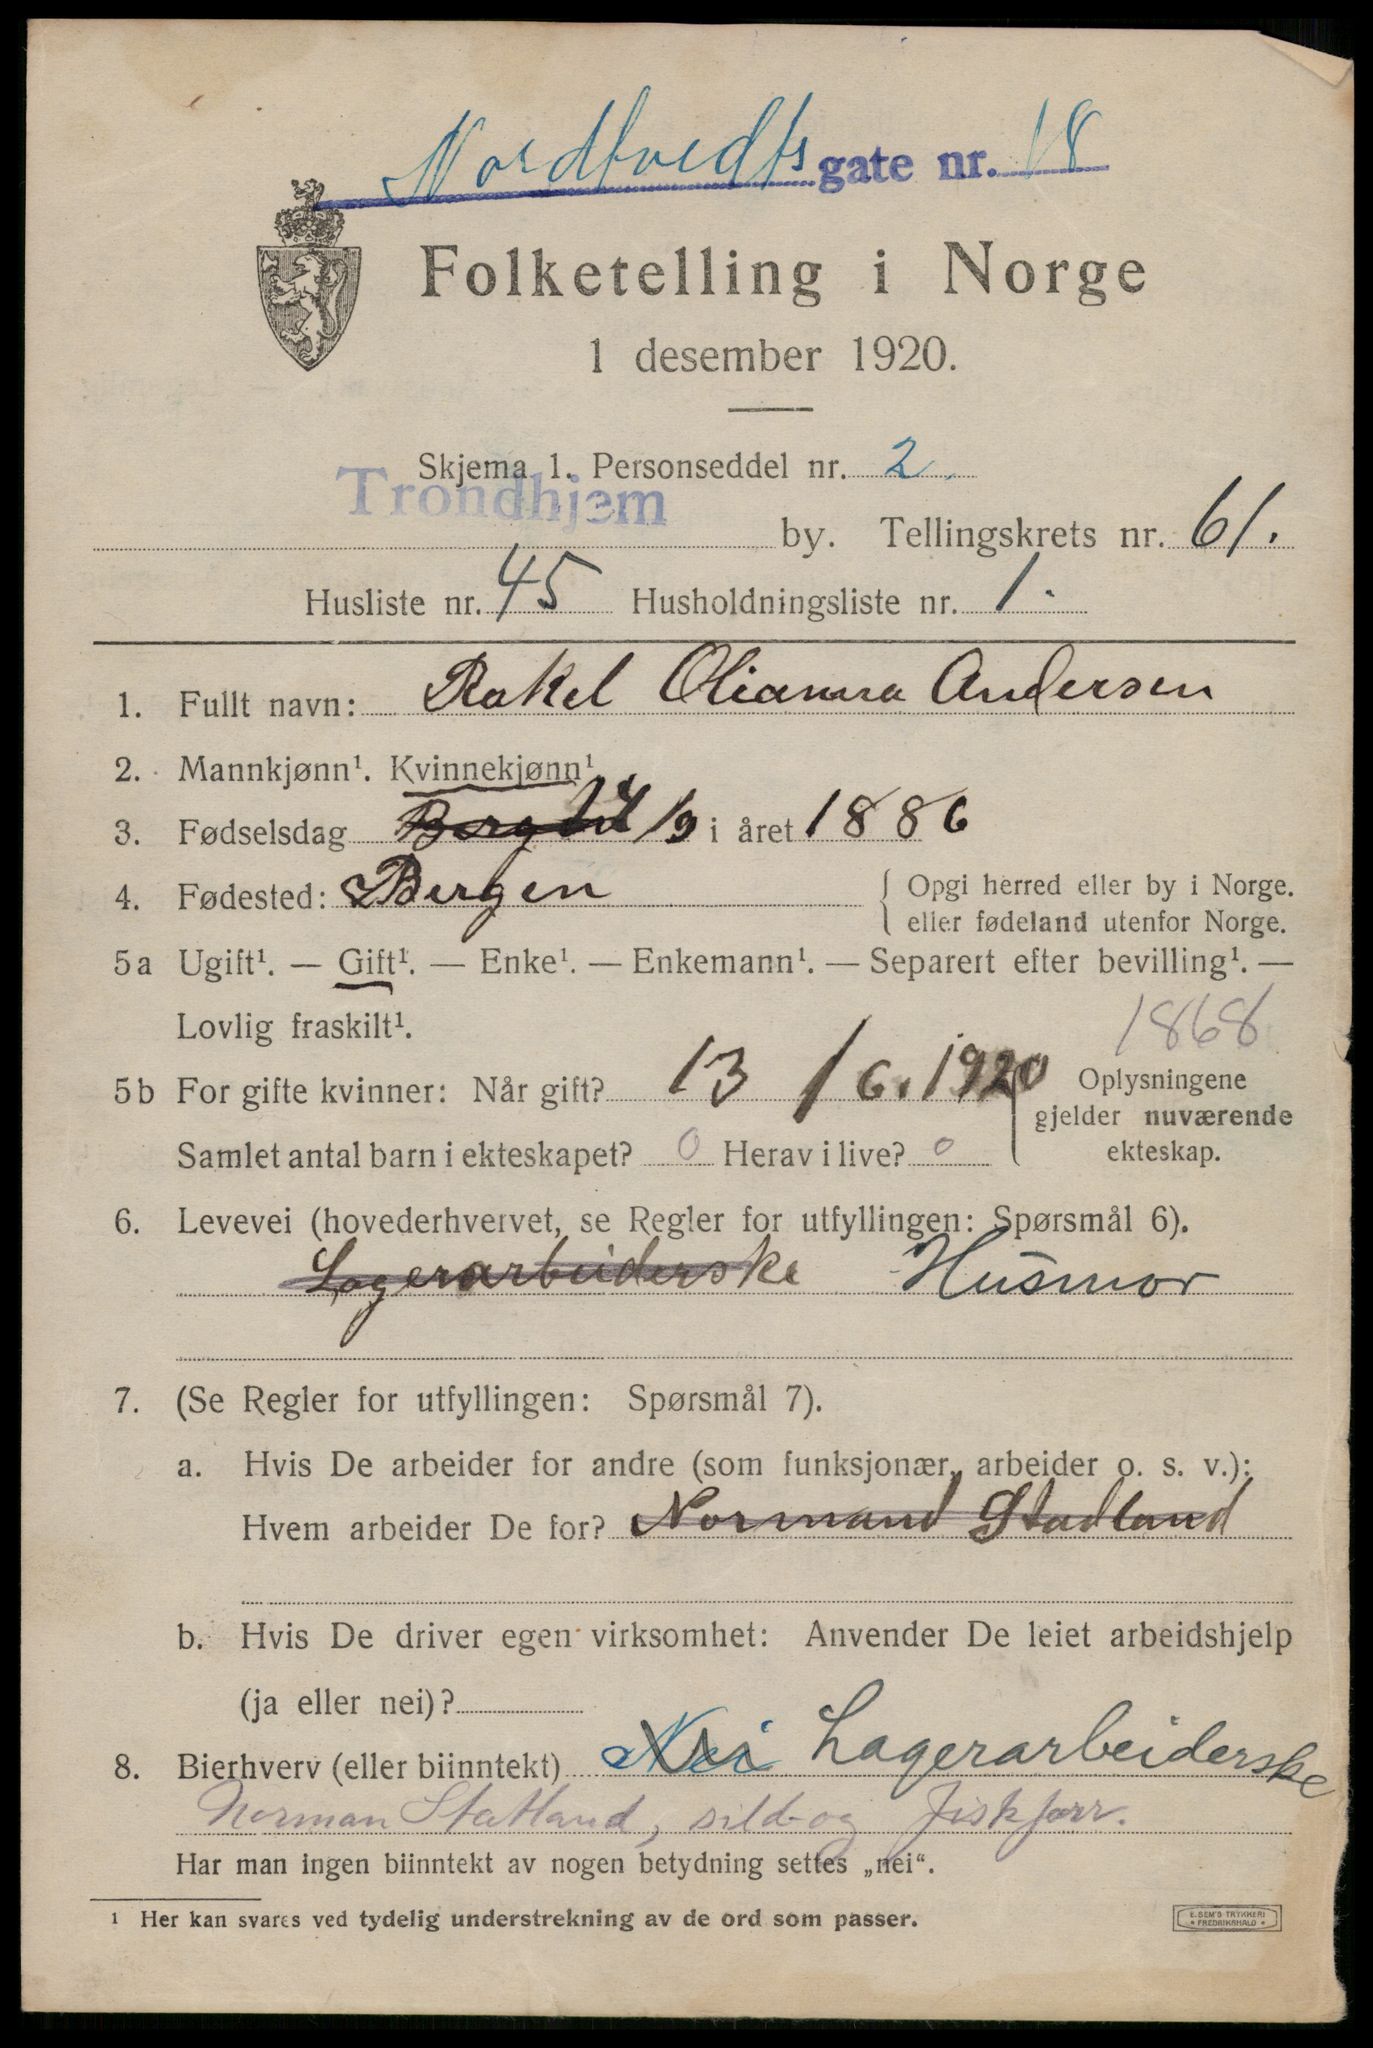 Nordtvedts gate nr. 18
Folketelling i Norge
1 desember 1920.
Skjema 1. Personseddel nr. 2.
Trondhjem by. Tellingskrets nr. 61.
Husliste nr. 45 Husholdningsliste nr. 1.
1. Fullt navn: Rakel Olianna Andersen
2. Mannkjønn¹. Kvinnekjønn¹
3. Fødselsdag /9 i året 1886
4. Fødested: Bergen { Opgi herred eller by i Norge.
eller fødeland utenfor Norge.
5a Ugift¹. — Gift¹. — Enke¹. — Enkemann¹. — Separert efter bevilling¹. —
Lovlig fraskilt¹.
1868
5b For gifte kvinner: Når gift? 13/6. 1920 Oplysningene
gjelder nuværende
Samlet antal barn i ekteskapet? 0 Herav i live? 0 ekteskap.
6. Levevei (hovederhvervet, se Regler for utfyllingen: Spørsmål 6).
Lagerarbeiderske Husmor
7. (Se Regler for utfyllingen: Spørsmål 7).
a. Hvis De arbeider for andre (som funksjonær, arbeider o. s. v.):
Hvem arbeider De for? Normand Stadland
b. Hvis De driver egen virksomhet: Anvender De leiet arbeidshjelp
(ja eller nei)?
8. Bierhverv (eller biinntekt) Nei Lagerarbeiderske
Norman Statland, sild-og fiskforr.
Har man ingen biinntekt av nogen betydning settes „nei“.
¹ Her kan svares ved tydelig understrekning av de ord som passer.
E. SEM'S TRYKKERI
FREDRIKSHALD